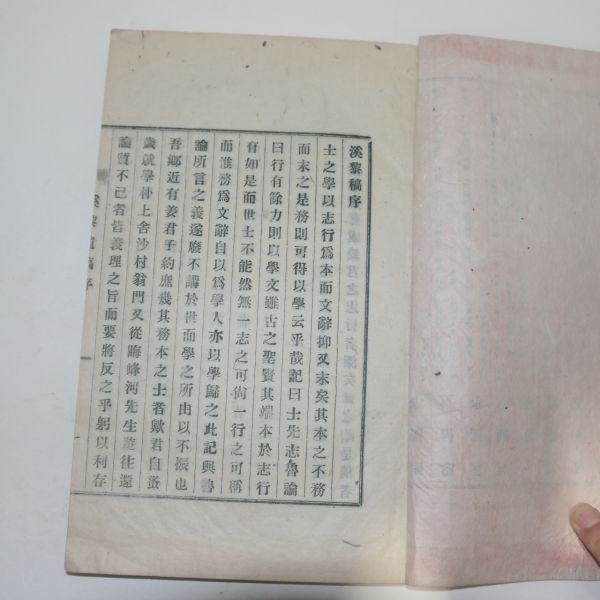 溪黎稿序
士之學以志行爲本而文辭抑又末矣其本之不務
而末之是務則可得以學云乎哉記曰士先志魯論
曰行有餘力則以學文雖古之聖賢其端本於志行
有如是而世士不能然無一志之可尙一行之可稱
而惟務爲文辭自以爲學人亦以學歸之此記與魯
論所言之義遂廢不講於世而學之所由以不振也
吾鄉近有姜君子約庶幾其務本之士者歟君自蚤
歲就學朴上舍沙村翁門又從晦峰河先生遊往還
論質不已者皆義理之旨而要將反之乎躬以利存
溪黎 稿序